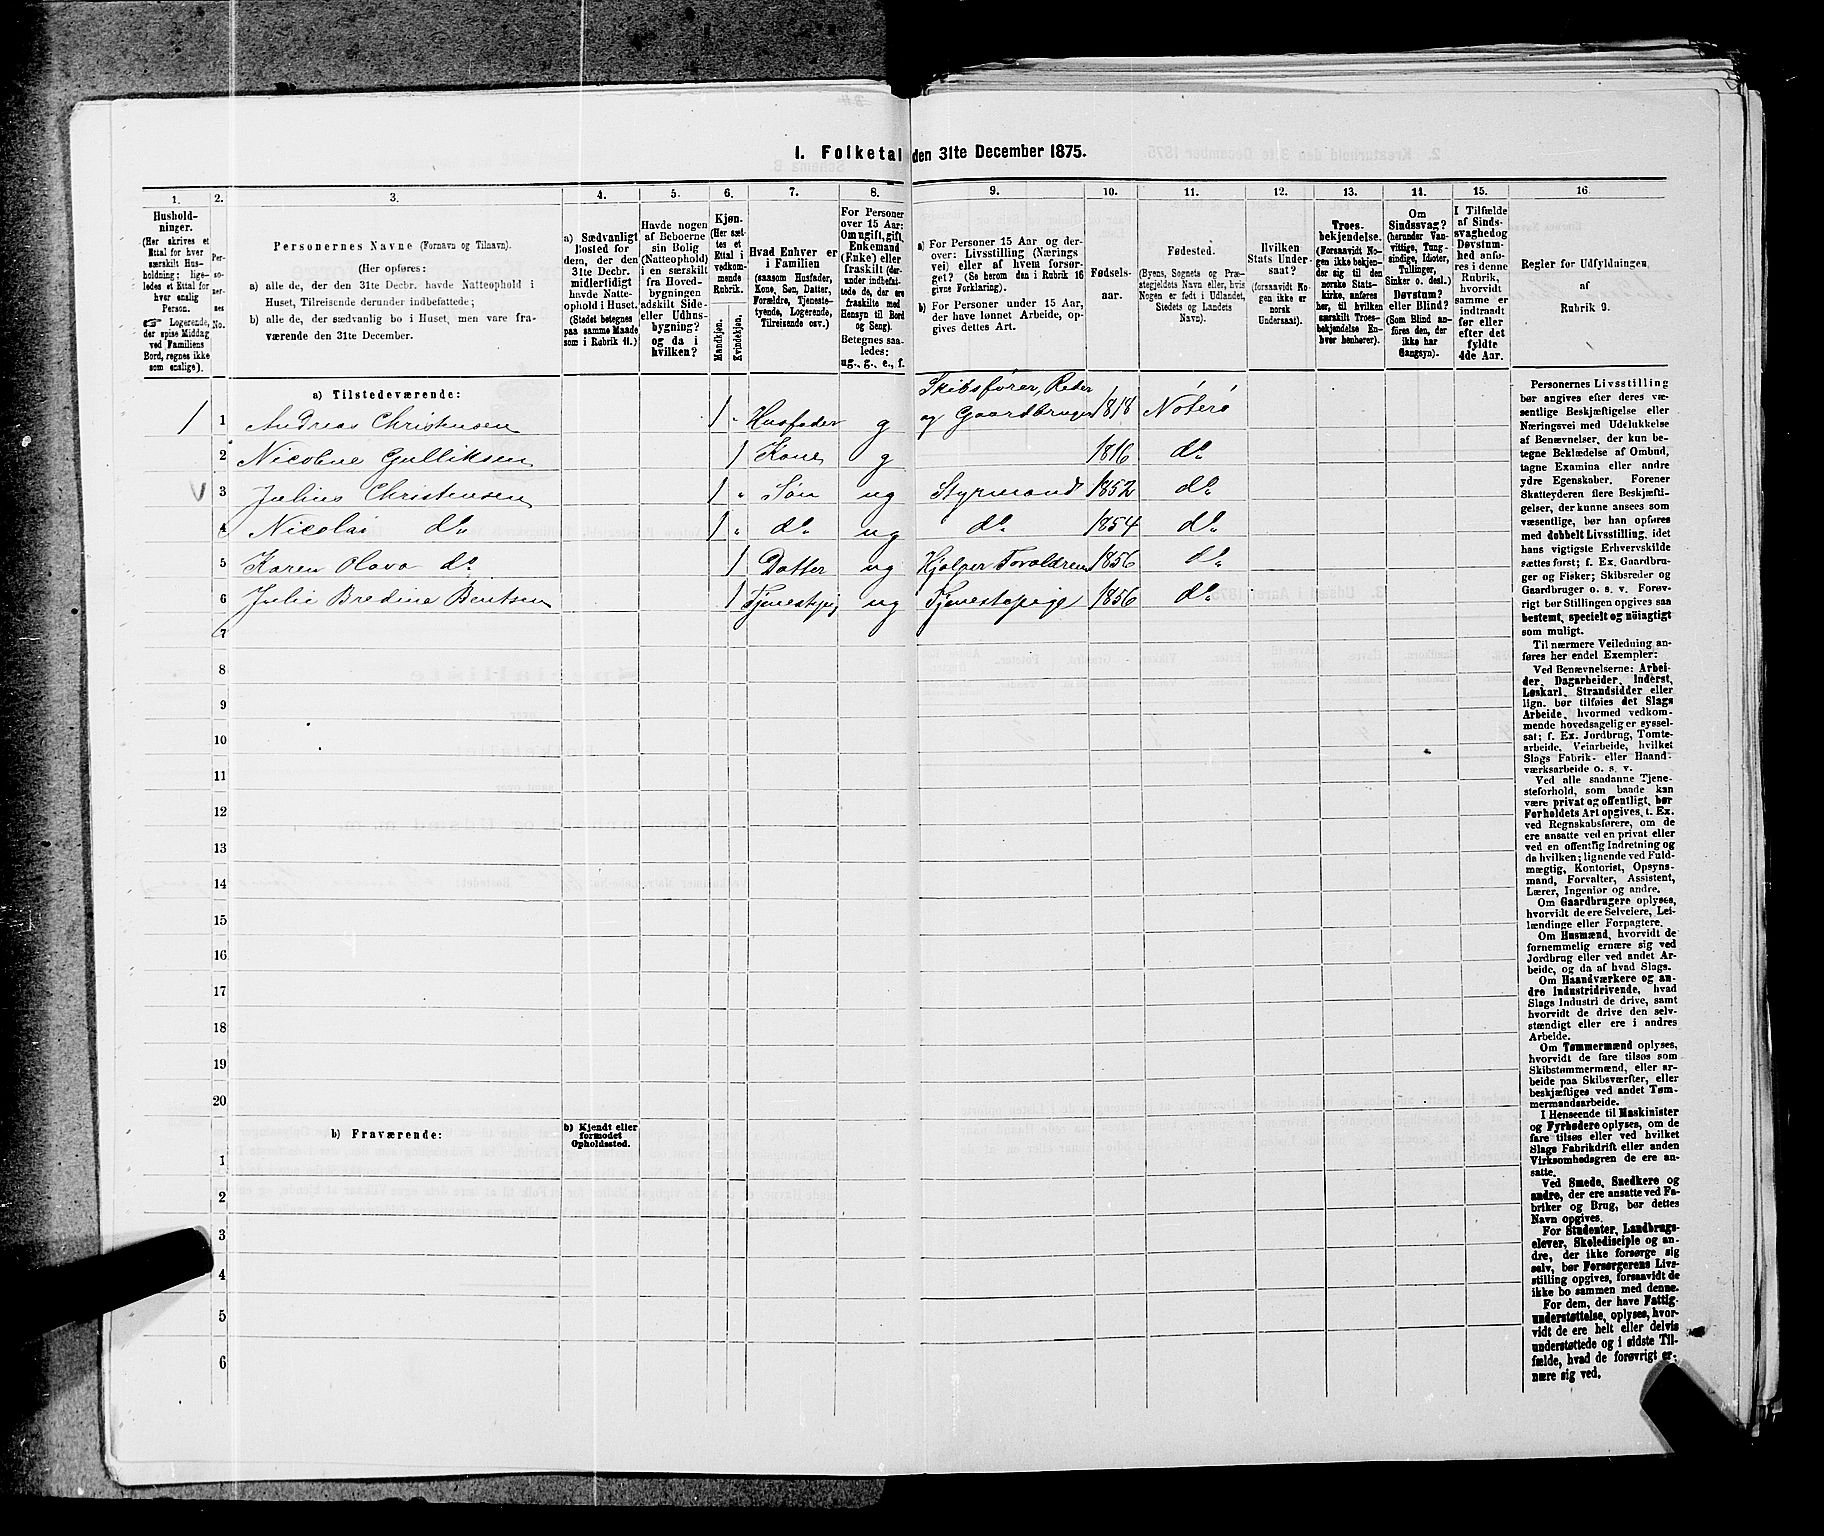 I. Folketal den 31te December 1875.
1.
2.
3.
4.
5.
6.
7.
8.
9.
10.
11.
12.
13.
14.
15.
16.
Hushold-
ninger.
(Her skrives et
Ettal for hver
særskilt Hus-
holdning; lige-
ledes et Ettal for
hver enslig
Person.
☞ Logerende,
der spise Middag
ved Familiens
Bord, regnes ikke
som enslige).
Per-
so-
ner-
nes
No.
Personernes Navne (Fornavn og Tilnavn).
(Her opføres:
a) alle de, der den 31te Decbr. havde Natteophold i
Huset, Tilreisende derunder indbefattede;
b) alle de, der sædvanlig bo i Huset, men vare fra-
værende den 31te December.
a) Sædvanligt
Bosted for
dem, der den
31te Decbr.
midlertidigt
havde Natte-
ophold i Huset.
(Stedet betegnes
paa samme Maade
som i Rubrik 11.)
Havde nogen
af Beboerne
sin Bolig
(Natteophold)
i en særskilt
fra Hoved-
bygningen
adskilt Side-
eller Udhus-
bygning?
og da i
hvilken?
Kjøn.
(Her sæt-
tes et
Ettal i
vedkom-
mende
Rubrik.
Mandkjøn.
Kvindekjøn.
Hvad Enhver er
i Familien
(saasom Husfader,
Kone, Søn, Datter,
Forældre, Tjeneste-
tyende, Logerende,
Tilreisende osv.)
For Personer
over 15 Aar:
Om ugift, gift,
Enkemand
(Enke) eller
fraskilt (der-
under indbefat-
tede de, der ere
fraskilte med
Hensyn til Bord
og Seng).
Betegnes saa-
ledes:
ug., g., e., f.
a) For Personer 15 Aar og der-
over: Livsstilling (Nærings
vei) eller af hvem forsør-
get? (Se herom den i Rubrik 16
givne Forklaring).
b) For Personer under 15 Aar,
der have lønnet Arbeide, op-
gives dettes Art.
Fødsels-
aar.
Fødested.
(Byens, Sognets og Præ-
stegjeldets Navn eller, hvis
Nogen er født i Udlandet,
Stedets og Landets
Navn).
Hvilken
Stats Under-
saat?
(forsaavidt No-
gen ikke er
norsk
Undersaat).
Troes-
bekjendelse.
(Forsaavidt No-
gen ikke bekjen-
der sig til den
norske Stats-
kirke, anføres
her, til hvilken
særskilt Troes-
bekjendelse En-
hver henhører).
Om
Sindssvag?
(herunder Van-
vittige, Tung-
sindige, Idioter,
Tullinger,
Sinker o. desl.)
Døvstum?
eller Blind?
(Som Blind an-
føres den, der
ikke har
Gangsyn).
I Tilfælde
af Sinds
svaghed og
Døvstum-
hed anfø-
res i denne
Rubrik,
hvorvidt
samme er
indtraadt
før eller
efter det
fyldte
4de Aar.
Regler for Udfyldningen
af
Rubrik 9.
a) Tilstedeværende:
1 1 Andreas Christensen 1 " Husfader g Skibsfører, Reder og Gaardbruger 1818 Nøterø
2 Nicoline Gulliksen 1 Kone g 1816 do
3 Julius Christensen 1 " Søn ug Styrmand 1852 do
4 Nicolai do 1 " do ug do 1854 do
5 Karen Olava do 1 Datter ug Hjælper Forældrene 1856 do
6 Julie Bredine Bentsen 1 Tjenestepig ug Tjenestepige 1856 do
7
8
9
10
11
12
13
14
15
16
17
18
19
20
b) Fraværende:
b) Kjendt eller
formodet
Opholdssted.
1
2
3
4
5
6
Personernes Livsstilling
bør angives efter deres væ-
sentlige Beskjæftigelse eller
Næringsvei med Udelukkelse
af Benævnelser, der kun be-
tegne Beklædelse af Ombud,
tagne Examina eller andre
ydre Egenskaber. Forener
Skatteyderen flere Beskjæfti-
gelser, der kunne ansees som
væsentlige, bør han opføres
med dobbelt Livsstilling, idet
hans vigtigste Erhvervskilde
sættes først; f. Ex. Gaardbru-
ger og Fisker; Skibsreder og
Gaardbruger o. s. v. Forøv-
rigt bør Stillingen opgives saa
bestemt, specielt og nöiagtigt
som muligt.
Til nærmere Veiledning an-
føres her endel Exempler:
Ved Benævnelserne: Arbei-
der, Dagarbeider, Inderst,
Løskarl, Strandsidder eller
lign. bør tilføies det Slags
Arbeide, hvormed vedkom-
mende hovedsagelig er syssel-
sat; f. Ex. Jordbrug, Tomte-
arbeide, Veiarbeide, hvilket
Slags Fabrik- eller Haand-
værksarbeide o. s. v.
Ved alle saadanne Tjene-
steforhold, som baade kan
være privat og offentligt, bør
Forholdets Art opgives, t. Ex.
ved Regnskabsførere, om de
ere ansatte ved en privat eller
ved en offentlig Indretning og
da hvilken; lignende ved Fuld-
mægtig, Kontorist, Opsyns-
mand, Forvalter, Assistent,
Lærer, Ingeniør og andre.
Om Gaardbrugere oplyses,
hvorvidt de ere Selveiere, Lei-
lændinge eller Forpagtere.
Om Husmænd, hvorvidt de
fornemmelig ernære sig ved
Jordbrug eller ved andet Ar-
beide, og da af hvad Slags.
Om Haandværkere og an-
dre Industridrivende, hvad
Slags Industri de drive, samt
hvorvidt de drive den selv-
stændigt eller ere i andres
Arbeide.
Om Tømmermænd oplyses,
hvorvidt de fare tilsøs som
Skibstømmermænd, eller ar-
beide paa Skibsværfter, eller
beskjæftiges ved andet Tøm-
mermandsarbeide.
I Henseende til Maskinister
og Fyrbødere oplyses, om de
fare tilsøs eller ved hvilket
Slags Fabrikdrift eller anden
Virksomhedsgren de ere an-
satte.
Ved Smede, Snedkere og
andre, der ere ansatte ved Fa-
briker og Brug, bør dettes
Navn opgives.
For Studenter, Landbrugs-
elever, Skoledisciple og an-
dre, der ikke forsørge sig
selv, bør Forsørgerens Livs-
stilling opgives, forsaavidt de
ikke bo sammen med denne.
For dem, der have Fattig-
understøttelse, oplyses, hvor-
vidt de ere helt eller delvis
understøttede og i sidste Til-
fælde, hvad de forøvrigt er-
nære sig ved.